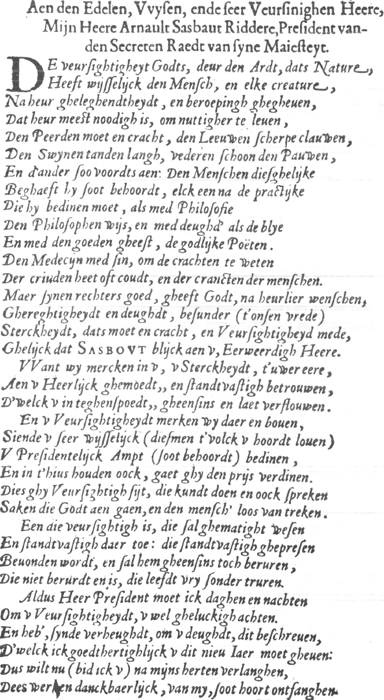 Aen den Edelen, VVysen, ende seer Veursinighen Heere,
Mijn Heere Arnault Sasbaut Riddere, President van-
den Secreten Raedt van syne Maiesteyt.
DE veursightigheyt Godts, deur den Ardt, dats Nature,
Heeft wijsselijck den Mensch, en elke creature,
Na heur gheleghendtheydt, en beroepingh ghegheuen,
Dat heur meest noodigh is, om nuttigher te leuen,
Den Peerden moet en cracht, den Leeuwen scherpe clauwen,
Den Swynen tanden langh, vederen schoon den Pauwen,
En d'ander soo voordts aen: Den Menschen diesghelijke
Beghaeft hy soot behoordt, elck een na de practijke
Die hy bedinen moet, als med Philosofie
Den Philosophen wijs, en med deughd' als de blye
En med den goeden gheest, de godlijke Poëten.
Den Medecyn med sin, om de crachten te weten
Der criuden heet oft coudt, en der crancten der menschen.
Maer synen rechters goed, gheeft Godt, na heurlier wenschen,
Ghereghtigheydt en deughdt, besunder (t'onsen vrede)
Sterckheydt, dats moet en cracht, en Veursightigheyd mede,
Ghelijck dat SASBOVT blijck aen v, Eerweerdigh Heere.
VVant wy mercken in v, v Sterckheydt, t'uwer eere,
Aen v Heerlijck ghemoedt,, en standtvastigh betrouwen,
D'welck v in teghenspoedt,, gheensins en laet verflouwen.
En v Veursightigheydt merken wy daer en bouen,
Siende v seer wijsselijck (diesmen t'volck v hoordt louen)
V Presidentelijck Ampt (soot behoordt) bedinen,
En in t'huis houden oock, gaet ghy den prijs verdinen.
Dies ghy Veursightigh sijt, die kundt doen en oock spreken
Saken die Godt aen gaen, en den mensch' loos van treken.
Een die veursightigh is, die sal ghematight wesen
En standtvastigh daer toe: die standtvastigh ghepresen
Beuonden wordt, en sal hem gheensins toch beruren,
Die niet berurdt en is, die leefdt vry sonder truren.
Aldus Heer President moet ick daghen en nachten
Om v Veursightigheydt, v wel gheluckigh achten.
En heb', synde verheughdt, om v deughdt, dit beschreuen,
D'welck ick goedthertighlijck v dit nieu Iaer moet gheuen:
Dus wilt nu (bid ick v) na mijns herten verlanghen,
Dees werken danckbaerlijck, van my, soot hoort ontfanghen.